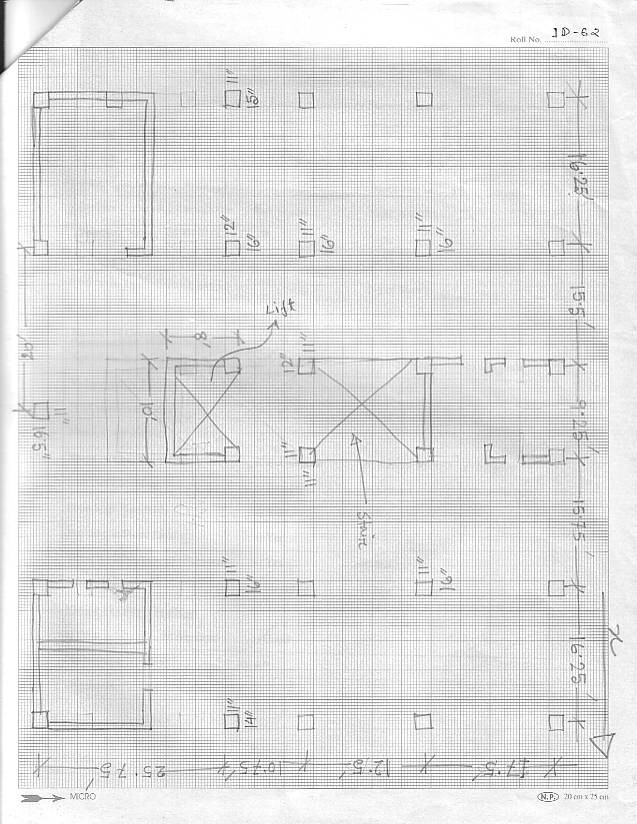 Roll No. ID-62
11"
15"
16.25'
12"
16"
11"
16"
11"
16"
15.5'
Lift
8'
20'
12"
11"
11"
16.5"
10'
9.25'
11"
11"
Stair
15.75'
11"
16"
11"
16"
16.25'
11"
14"
25'.75'
10'75'
12'.5'
17'.5'
N
MICRO
N.P. 20 cm x 25 cm